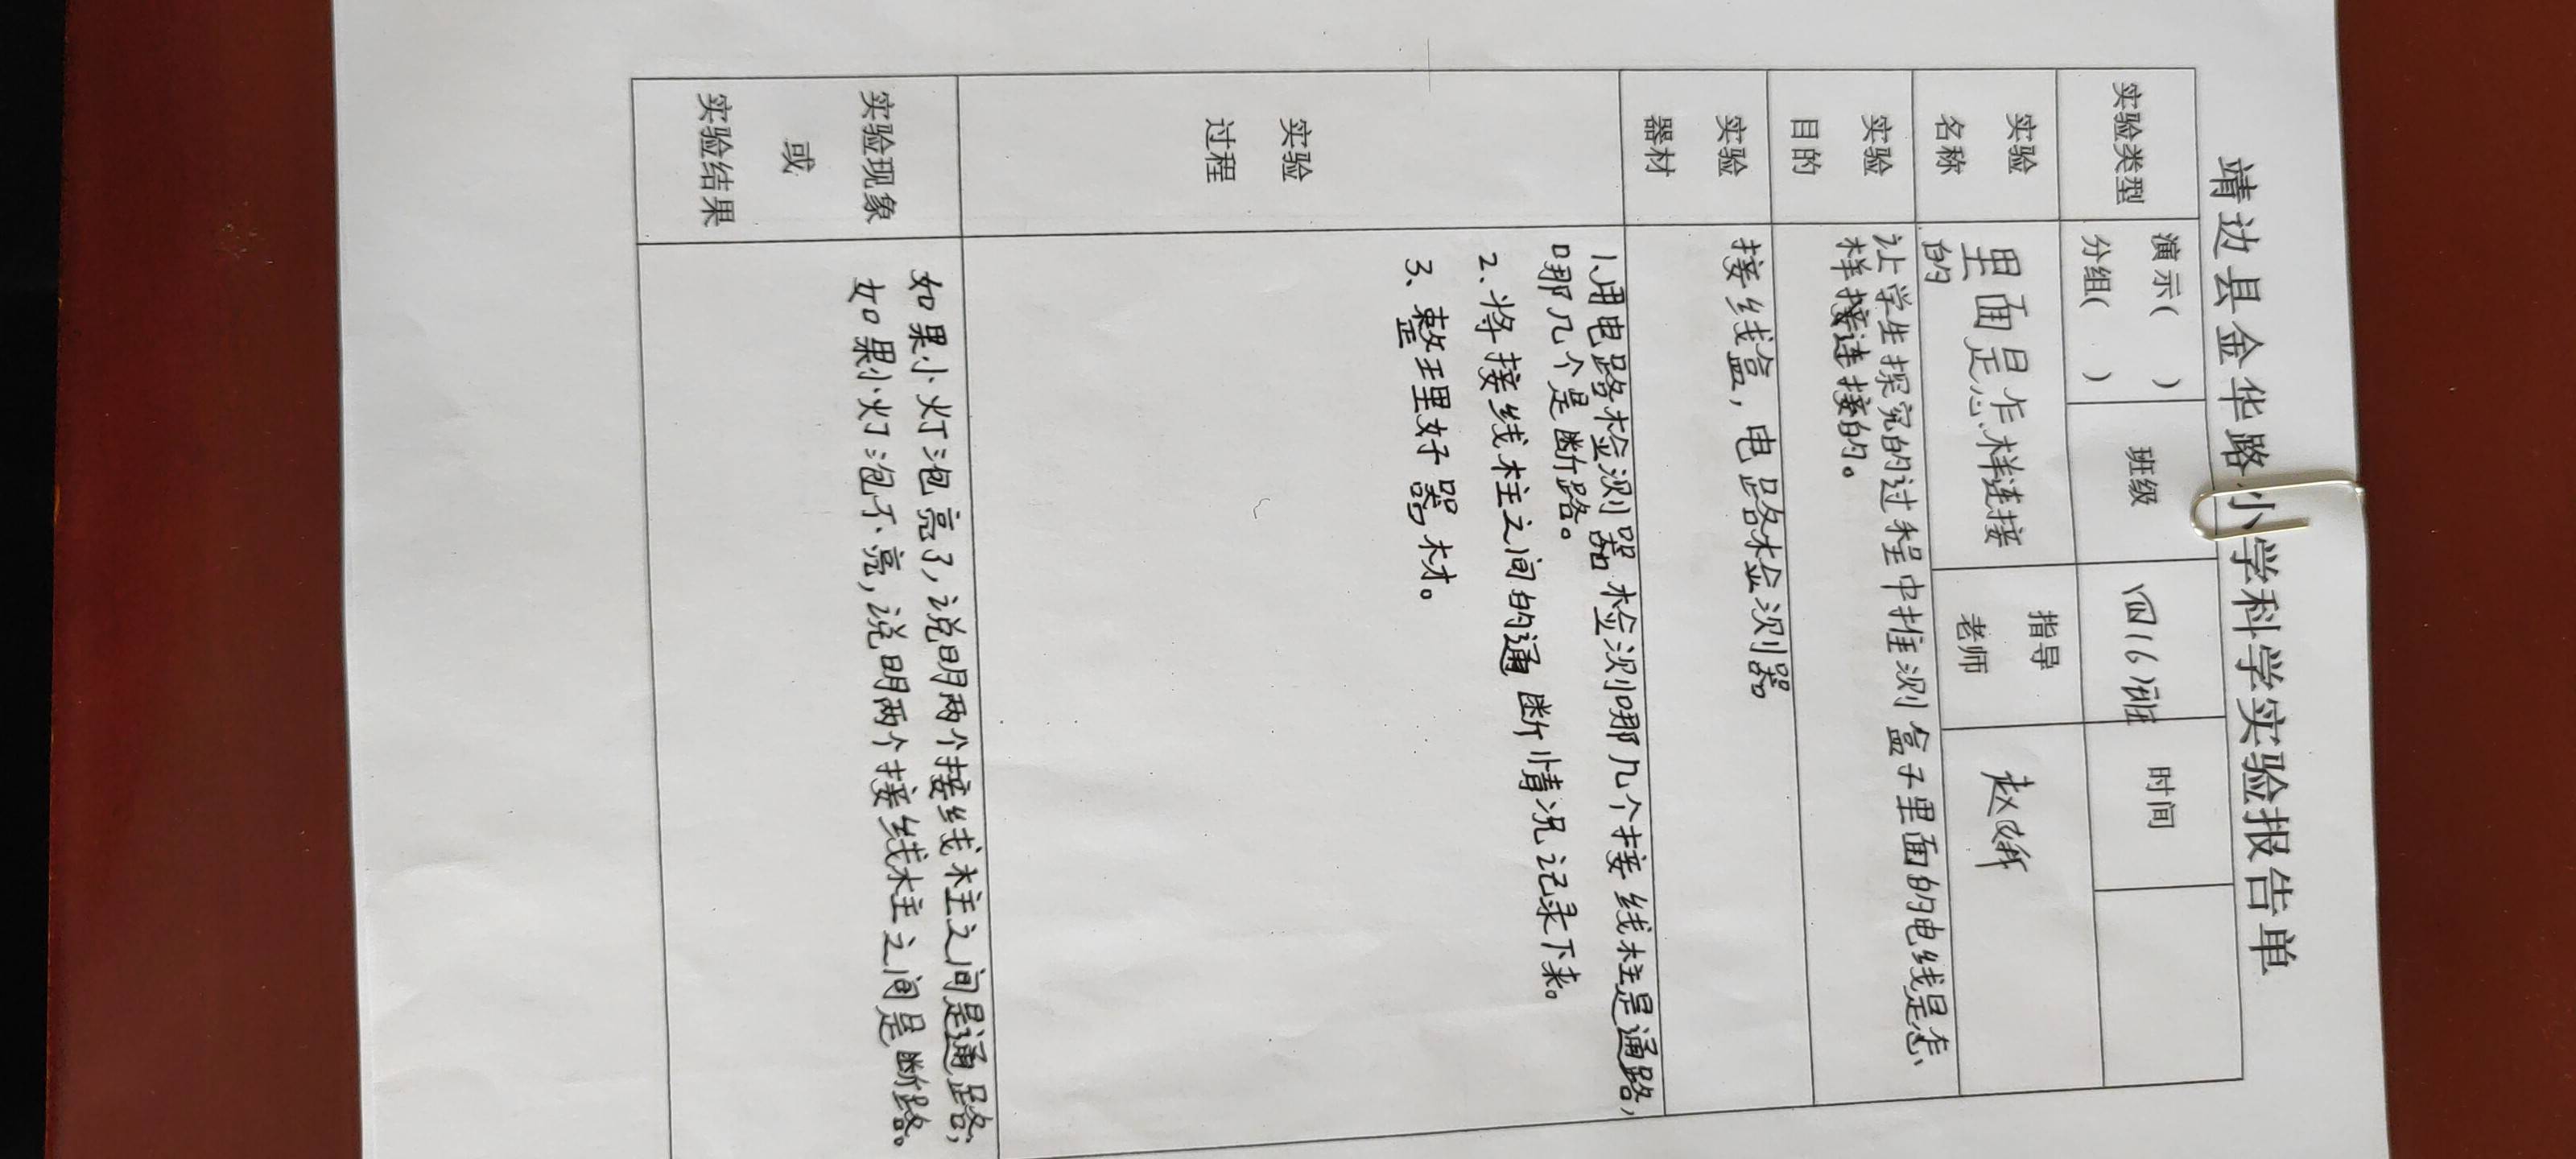 靖边县金华路小学科学实验报告单
实验类型 演示( ) 分组( ) 班级 四(6)班 时间
实验名称 里面是怎样连接的 指导老师 赵娇
实验目的 让学生探究的过程中推测盒子里面的电线是怎
样接连接的。
实验器材 接线盒，电路检测器
实验过程
1.用电路检测器检测哪几个接线柱是通路，
哪几个是断路。
2、将接线柱之间的通断情况记录下来。
3、整理好器材。
实验现象
或
实验结果
如果小灯泡亮了，说明两个接线柱之间是通路；
如果小灯泡不亮，说明两个接线柱之间是断路。